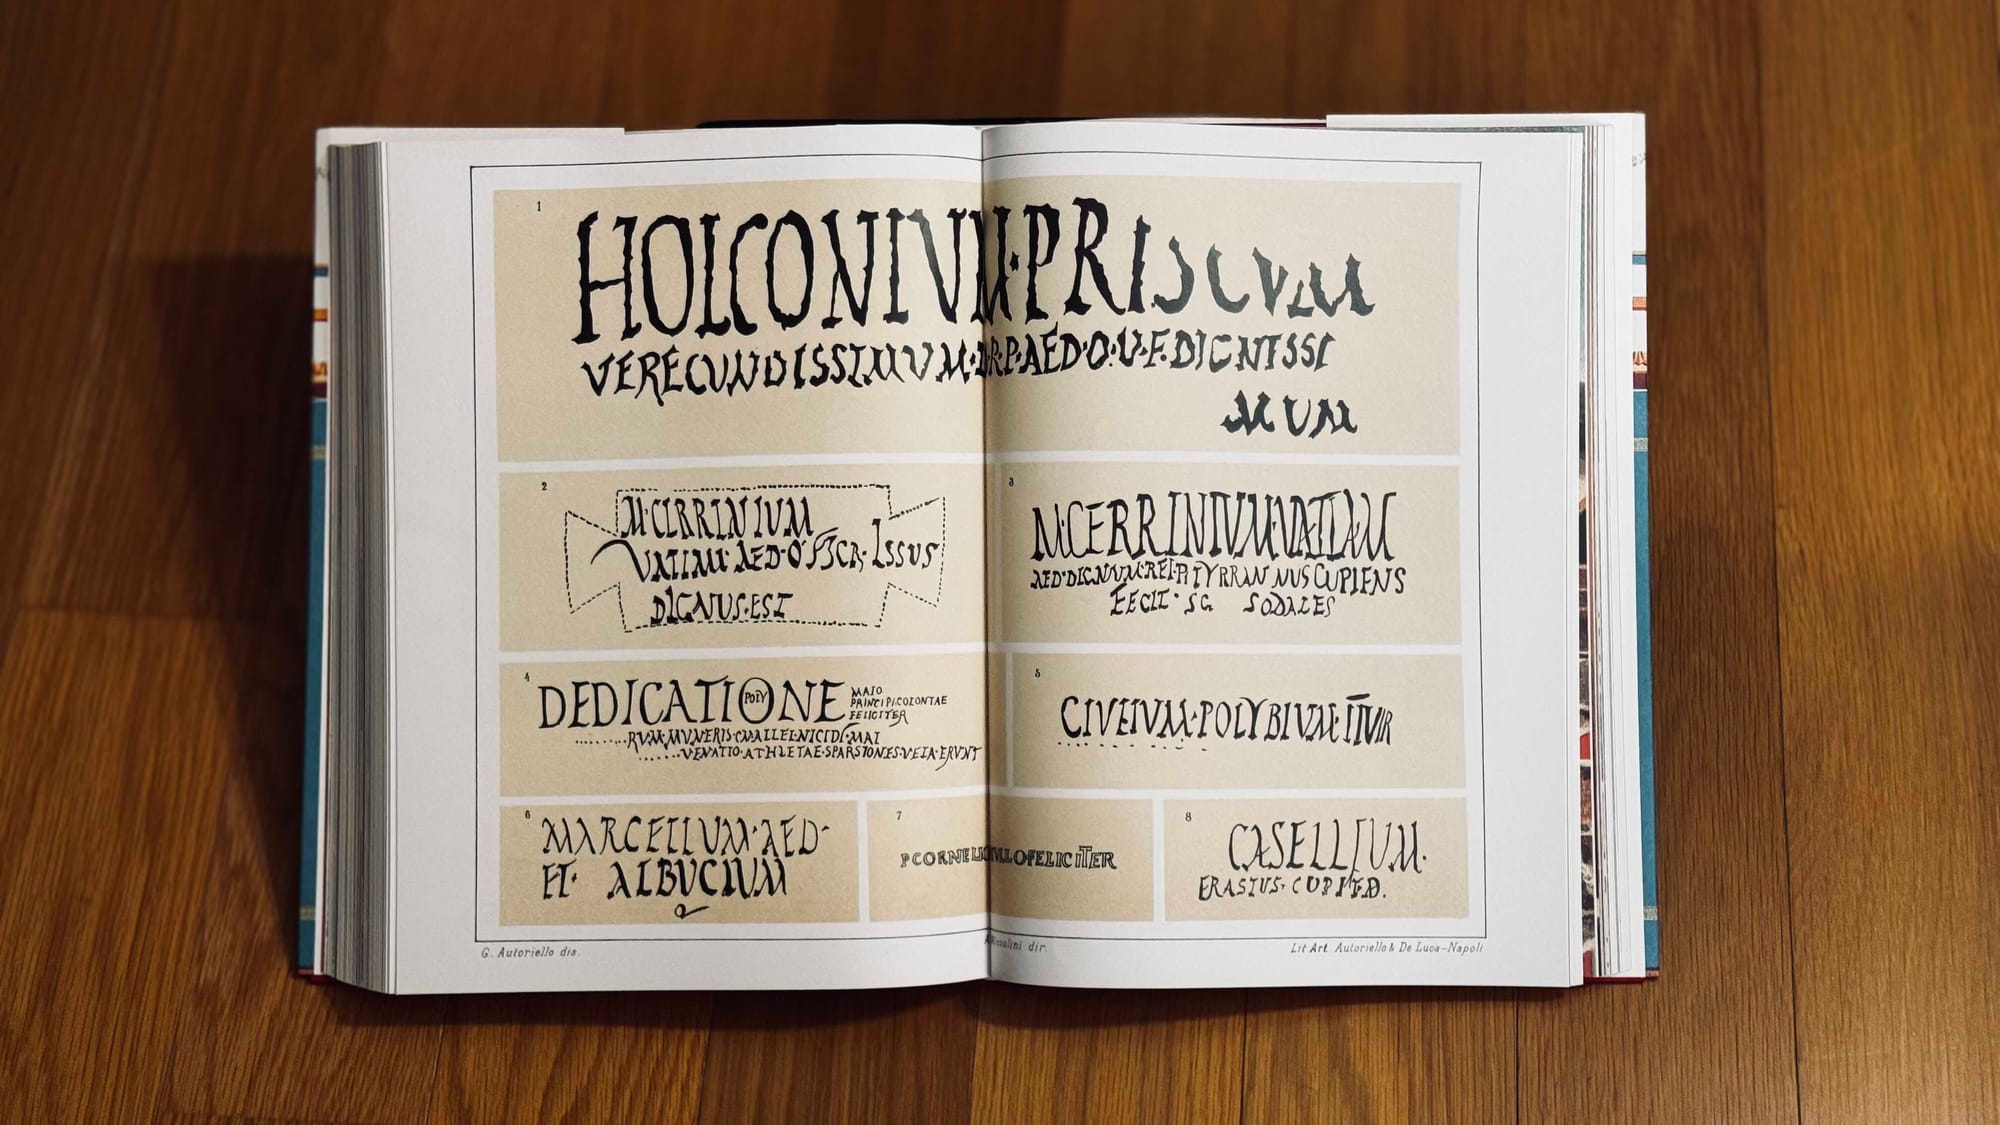 1
HOLCONIVM·PRISCVM
VERECUNDISSIMUM·D·R·P·AED·O·V·F·DIGNISSI
MUM
2
M·CERRINIUM
VATIAM·AED·O
DIGNUS·EST
3
M·CERRINIVM·VATIAM
AED·DIGNUM·REI·P·TYRRANNUS CUPIENS
FECIT· SODALES
4
DEDICATIONE
POLY
MAIO
PRINCIPI·COLONIAE
FELICITER
RVM·MVNERIS·
VENATIO·ATHLETAE·SPARSIONES·VELA·ERVNT
5
POLYBIUM·IIVIR
6
MARCELLUM·AED·
ET· ALBUCIUM
7
FELICITER
8
CASELLIUM·
ERASTUS·
G. Autoriello dis.
dir.
Lit. Art. Autoriello & De Luca–Napoli